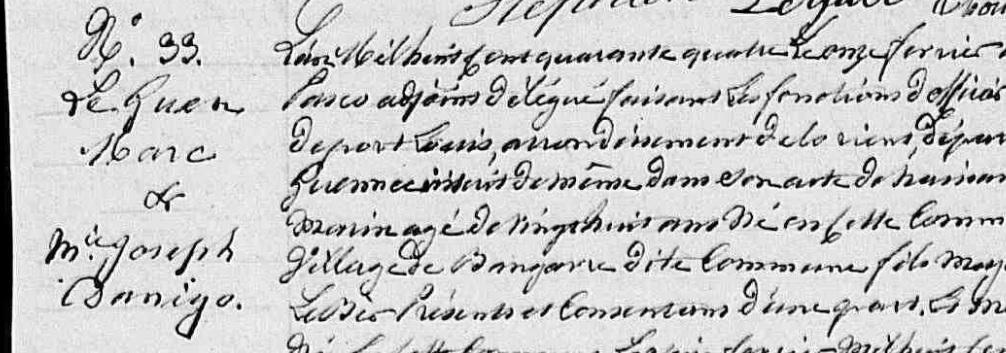 N.° 33.
Le Guen
Marc
&
M.ie Joseph
Danigo.
L'an Mil huit cent quarante quatre Le onze fevrier
Pasco adjoint délégué faisant Les fonctions d'officier
de port Louis, arrondissement de lorient, dépar
Guennec inscrit de même dans son acte de naissan
Marin agé de vingt huit ans Né en cette Commu
Village de dite Commune fils maj
Présents et Consentans d'une part. Et M
Née cette Commune